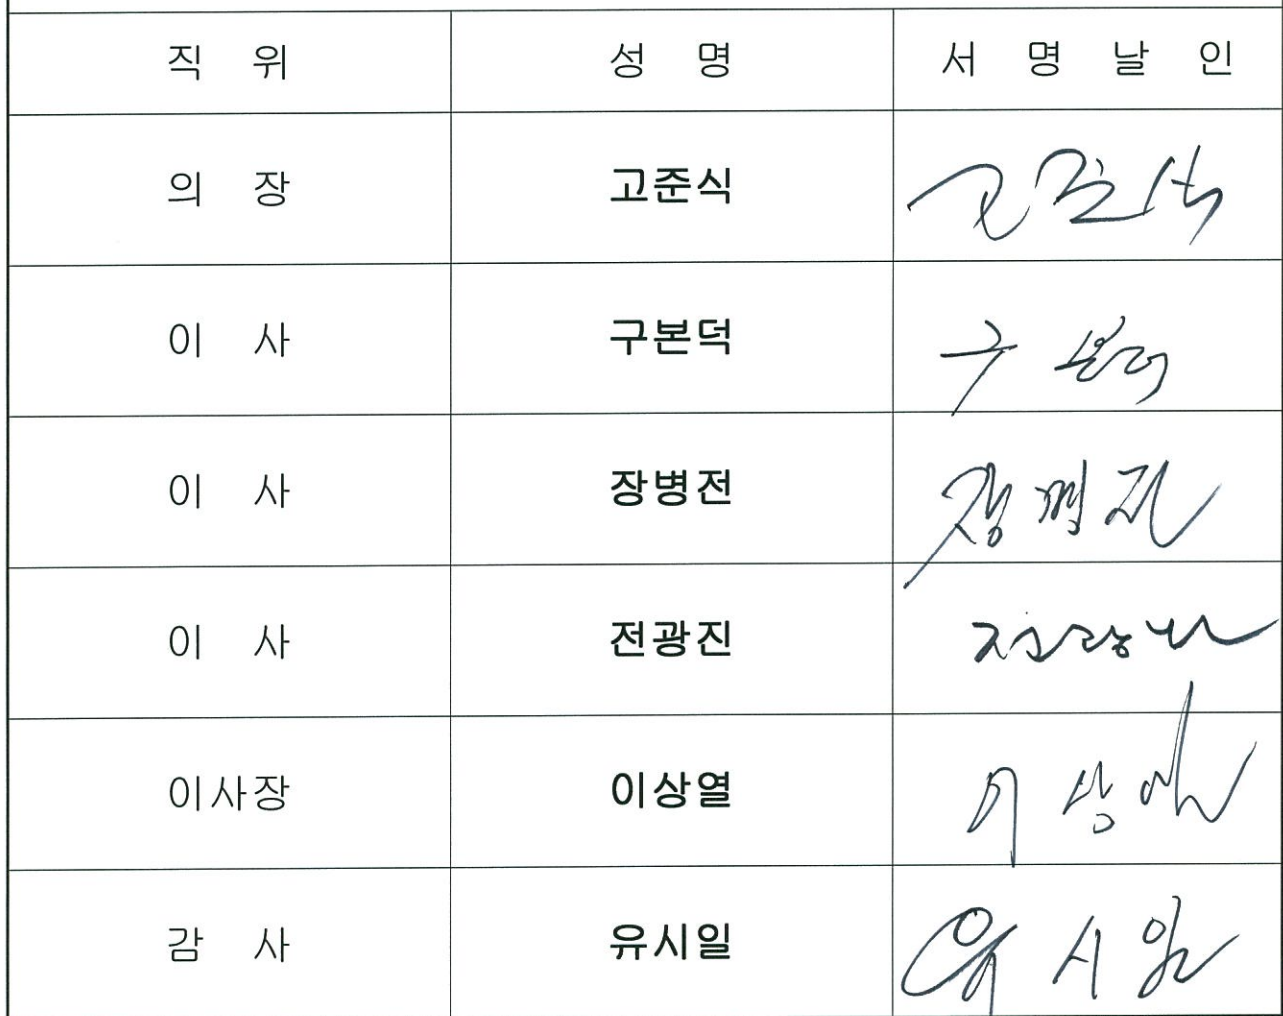 직 위 성 명 서 명 날 인
의 장 고준식 고준식
이 사 구본덕 구본덕
이 사 장병전 장병전
이 사 전광진 전광진
이사장 이상열 이상열
감 사 유시일 유시일